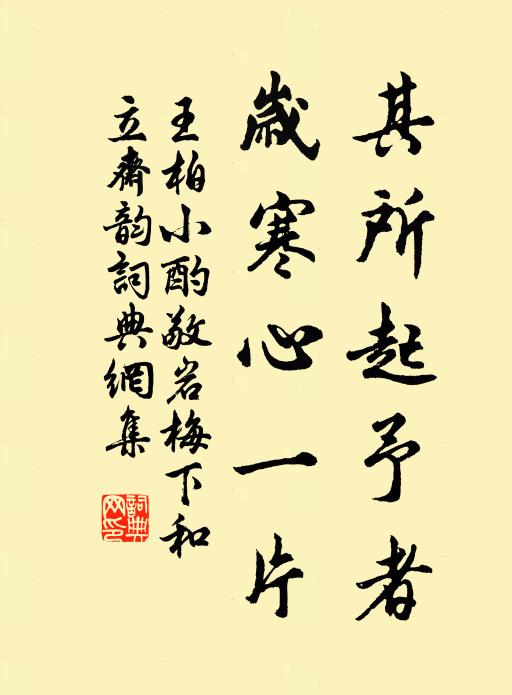 其所起予者
歲寒心一片
王柏小酌敬岩梅下和
立齋韵詞典網集
詞典
网印